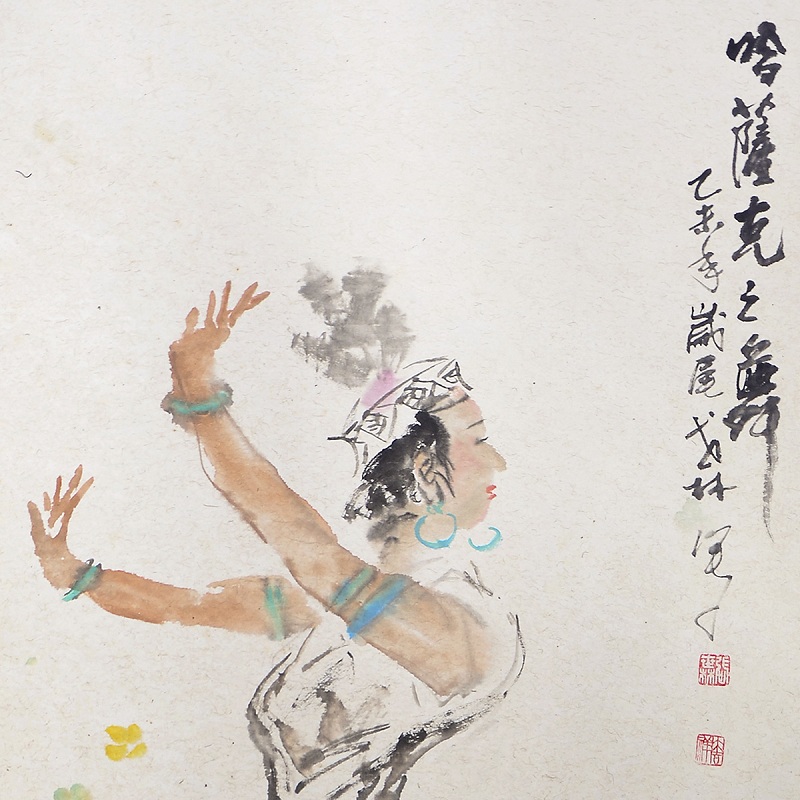 哈薩克之舞
乙未年歲尾戈林寫